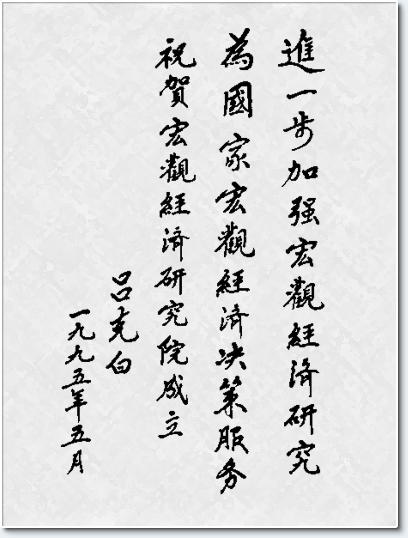 進一步加强宏觀經済研究
為國家宏觀經済决策服务
祝賀宏觀經済研究院成立
吕克白
一九九五年五月